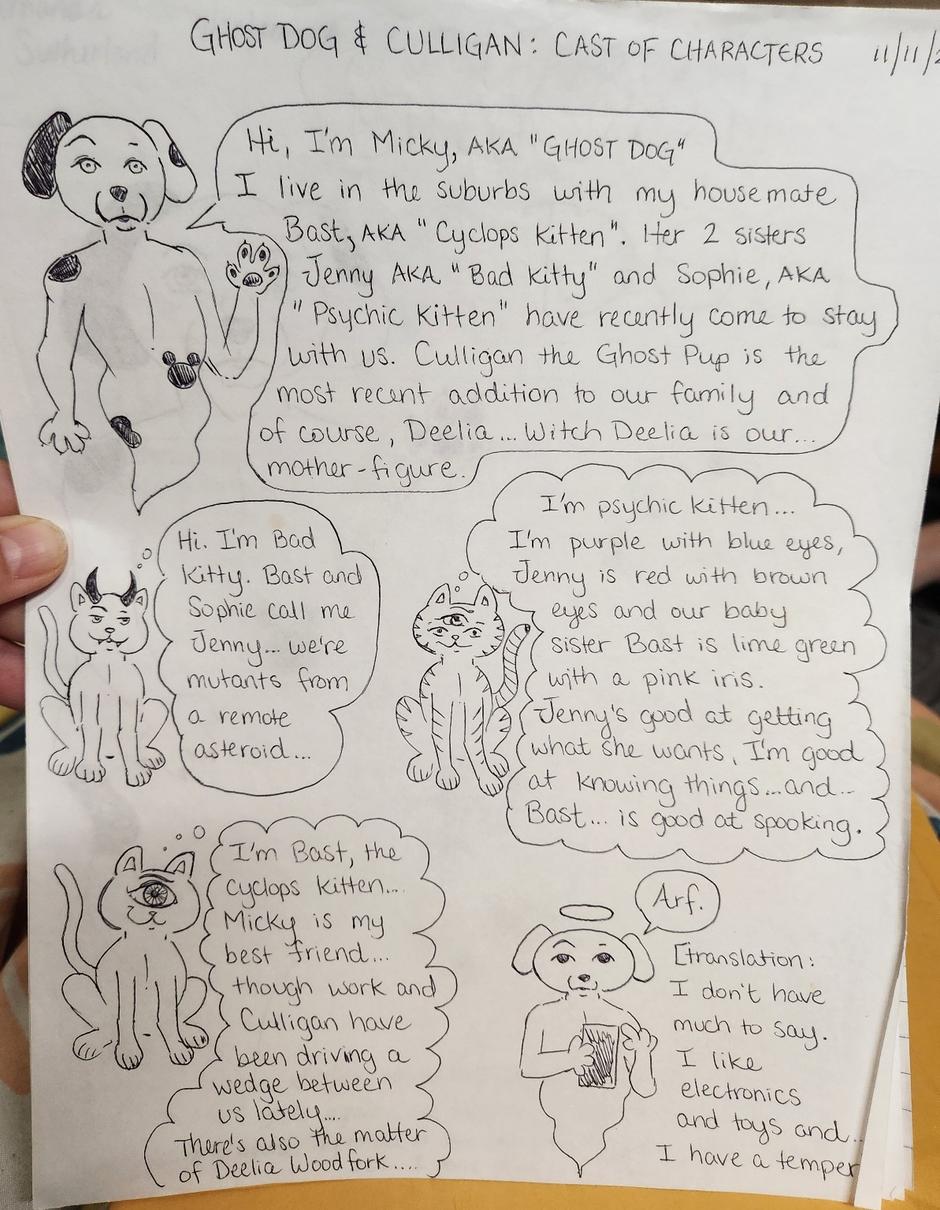 GHOST DOG & CULLIGAN: CAST OF CHARACTERS 11/11/
Hi, I'm Micky, AKA "GHOST DOG"
I live in the suburbs with my housemate
Bast, AKA "Cyclops Kitten". Her 2 sisters
Jenny AKA "Bad Kitty" and Sophie, AKA
"Psychic Kitten" have recently come to stay
with us. Culligan the Ghost Pup is the
most recent addition to our family and
of course, Deelia... Witch Deelia is our...
mother-figure.
Hi. I'm Bad
Kitty. Bast and
Sophie call me
Jenny... we're
mutants from
a remote
asteroid...
I'm psychic kitten...
I'm purple with blue eyes,
Jenny is red with brown
eyes and our baby
sister Bast is lime green
with a pink iris.
Jenny's good at getting
what she wants, I'm good
at knowing things...and...
Bast... is good at spooking.
I'm Bast, the
cyclops kitten...
Micky is my
best friend...
though work and
Culligan have
been driving a
wedge between
us lately....
There's also the matter
of Deelia Woodfork....
Arf.
[translation:
I don't have
much to say.
I like
electronics
and toys and..
I have a temper